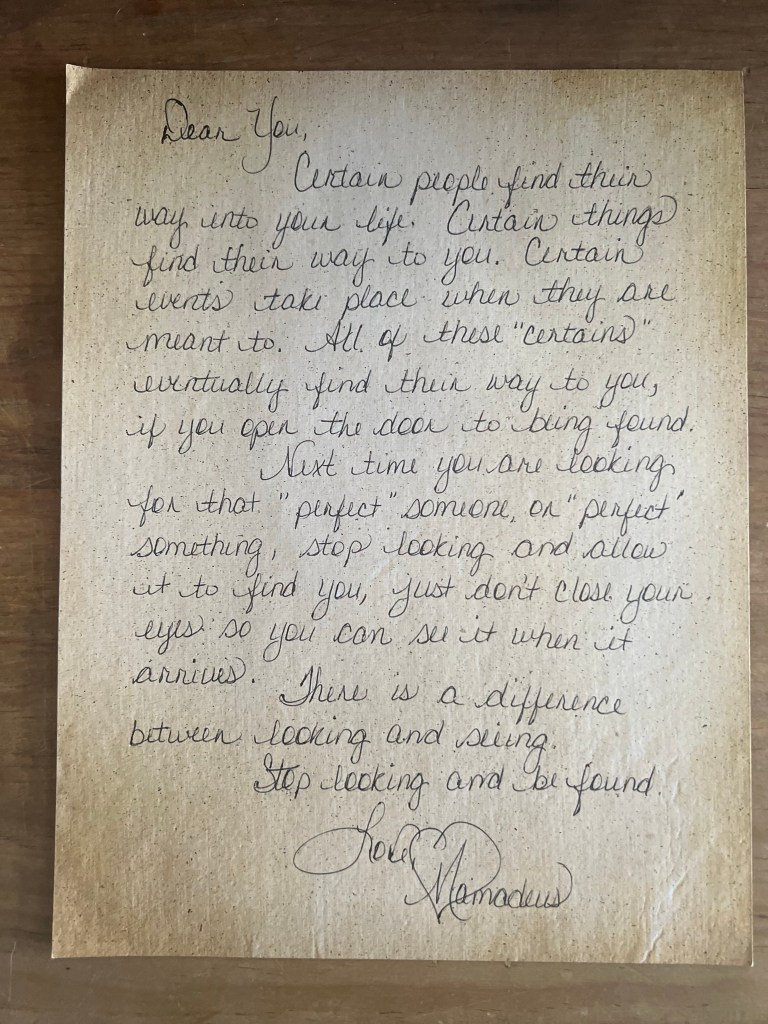 Dear You,
Certain people find their
way into your life. Certain things
find their way to you. Certain
events take place when they are
meant to. All of these "certains"
eventually find their way to you,
if you open the door to being found.
Next time you are looking
for that "perfect" someone, or "perfect"
something, stop looking and allow
it to find you, just don't close your
eyes so you can see it when it
arrives.
There is a difference
between looking and seeing.
Stop looking and be found.
Love,
Mamadeus